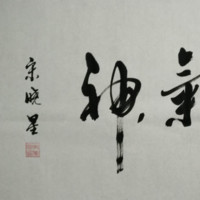 氣神
宋晓星